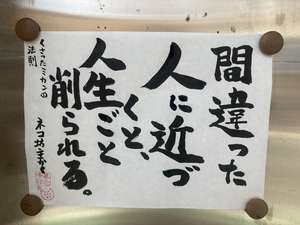 間違った
人に近づ
くと、
人生ごと
削られる。
くさったミカンの
法則
ネコ坊主